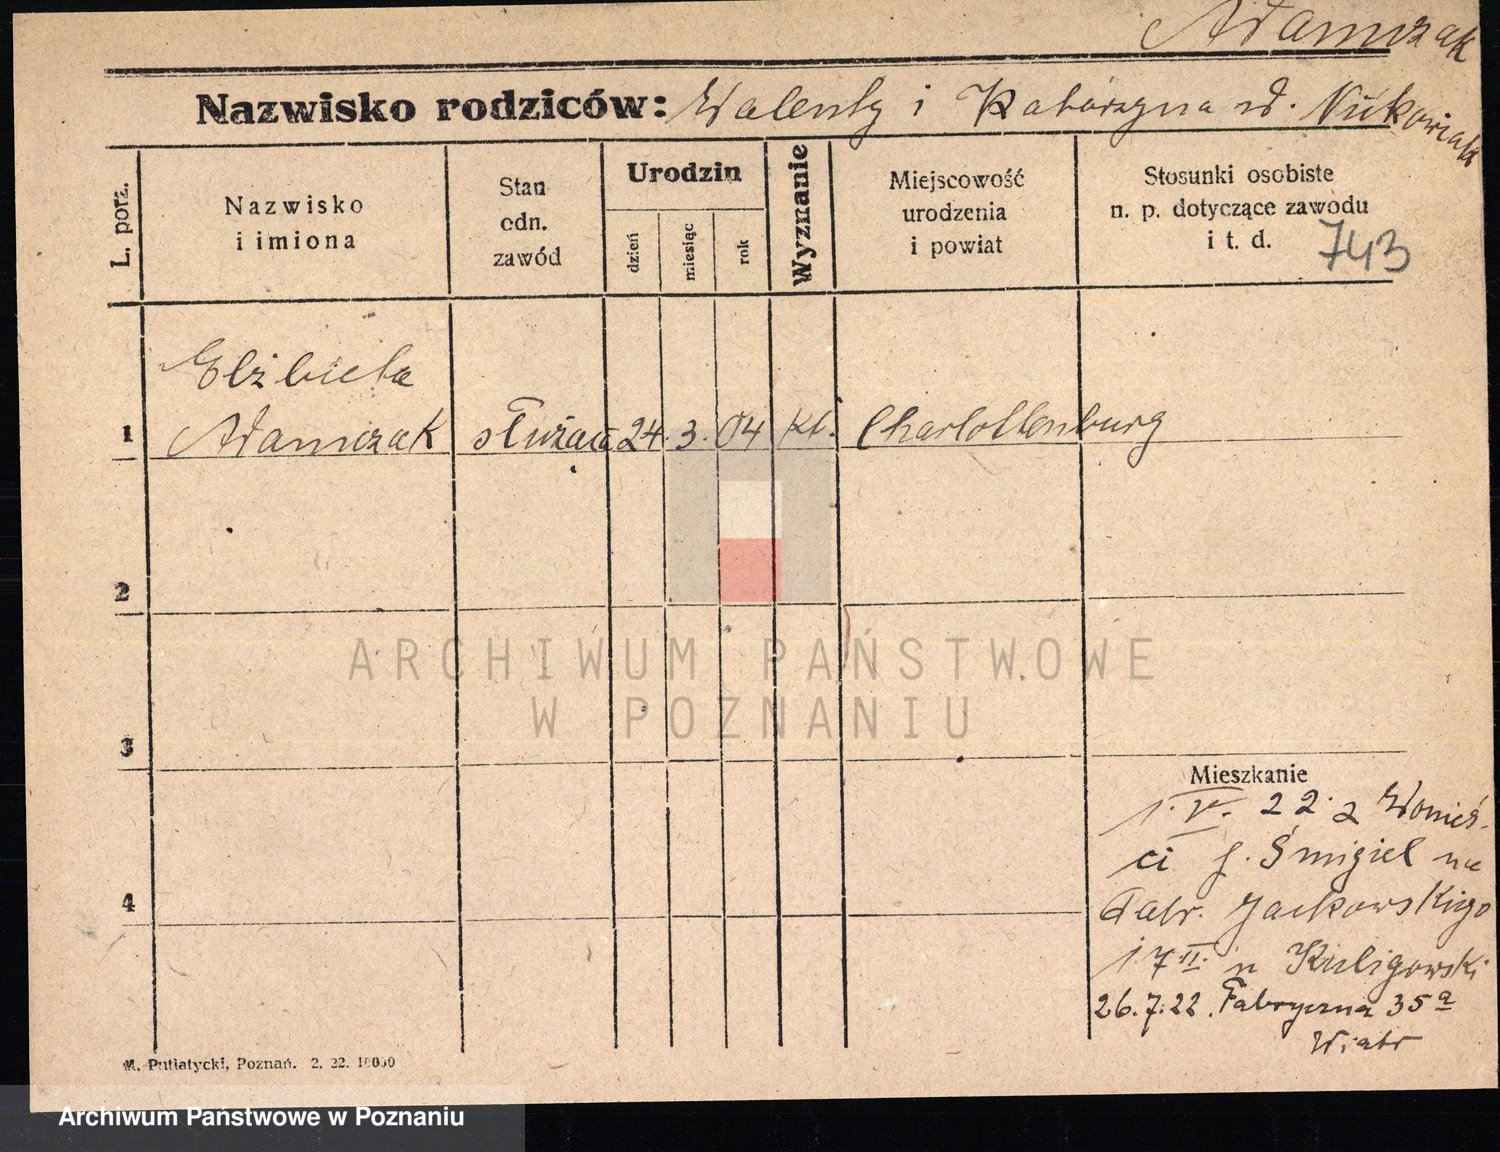 Adamczak
Nazwisko rodziców: Walenty i Katarzyna
L. porz.
Nazwisko
i imiona
Stan
odn.
zawód
Urodzin
dzień
miesiąc
rok
Wyznanie
Miejscowość
urodzenia
i powiat
Stosunki osobiste
n. p. dotyczące zawodu
i t. d.
743
Elżbieta
1 Adamczak służąca 24. 3. 04 kt. Charlottenburg
2
ARCHIWUM PAŃSTWOWE
W POZNANIU
3
Mieszkanie
1.V. 22. z Wonieś-
ci p. Śmigiel na
4 Jackowskiego
17 II. Kuligowski
26.7.22. Fabryczna 35a
Wiatr
M. Putiatycki, Poznań. 2. 22. 10000
Archiwum Państwowe w Poznaniu